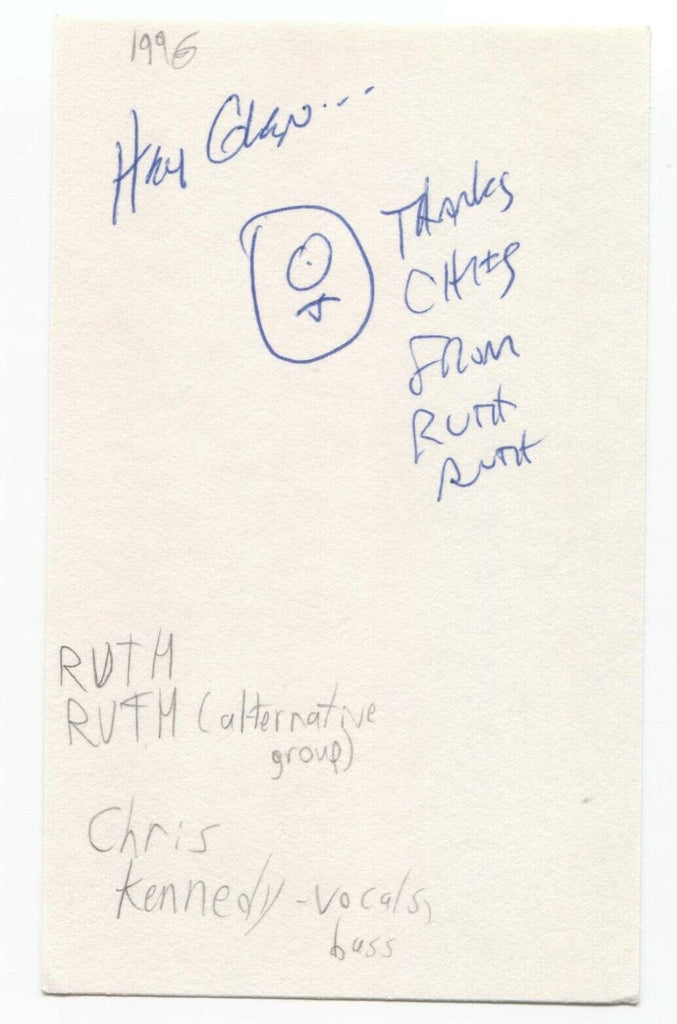 1996
Hey Glen...
Thanks
CHRIS
FROM
RUTH
RUTH
RUTH
RUTH (alternative
group)
Chris
Kennedy - vocals,
bass